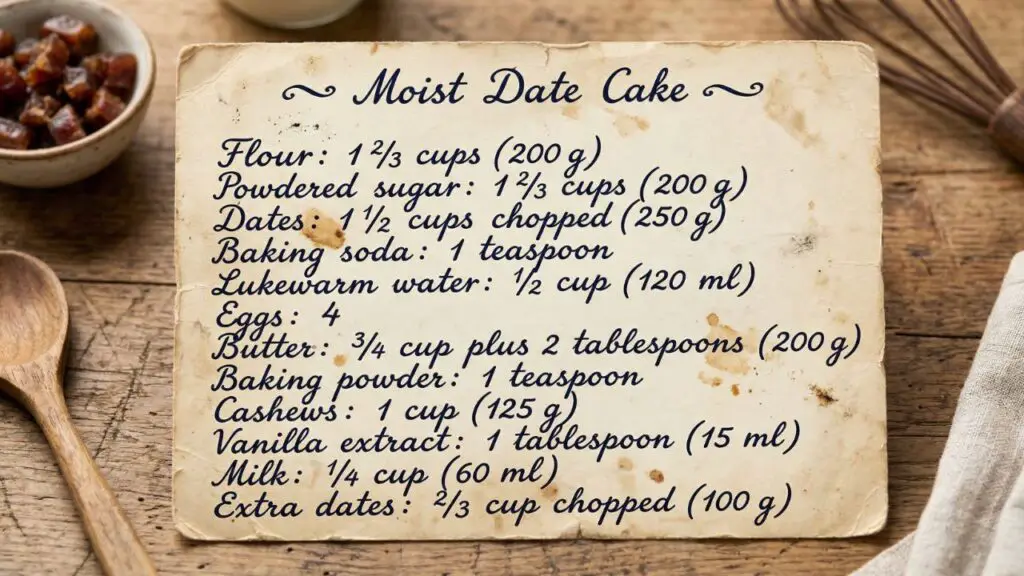 ~ Moist Date Cake ~
Flour: 1 2/3 cups (200 g)
Powdered sugar: 1 2/3 cups (200 g)
Dates: 1 1/2 cups chopped (250 g)
Baking soda: 1 teaspoon
Lukewarm water: 1/2 cup (120 ml)
Eggs: 4
Butter: 3/4 cup plus 2 tablespoons (200 g)
Baking powder: 1 teaspoon
Cashews: 1 cup (125 g)
Vanilla extract: 1 tablespoon (15 ml)
Milk: 1/4 cup (60 ml)
Extra dates: 2/3 cup chopped (100 g)